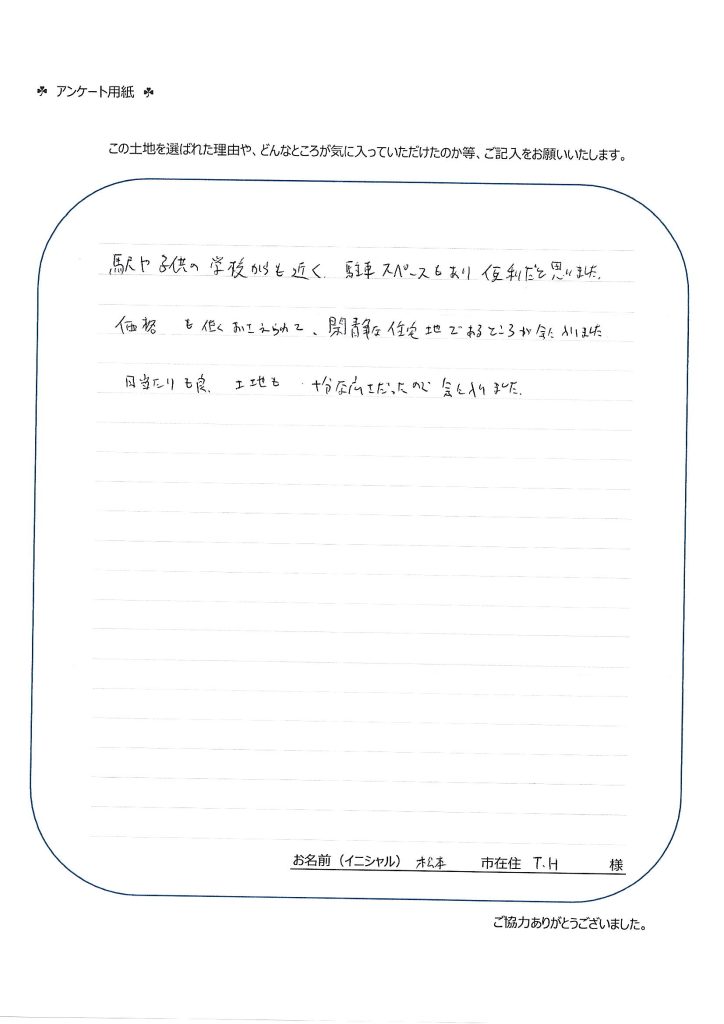 ☘ アンケート用紙 ☘
この土地を選ばれた理由や、どんなところが気に入っていただけたのか等、ご記入をお願いいたします。
駅や子供の学校からも近く、駐車スペースもあり便利だと思いました。
価格も低くおさえられて、閑静な住宅地であるところが気に入りました
日当たりも良、土地も十分な広さだったので気に入りました。
お名前（イニシャル） 松本 市在住 T.H 様
ご協力ありがとうございました。